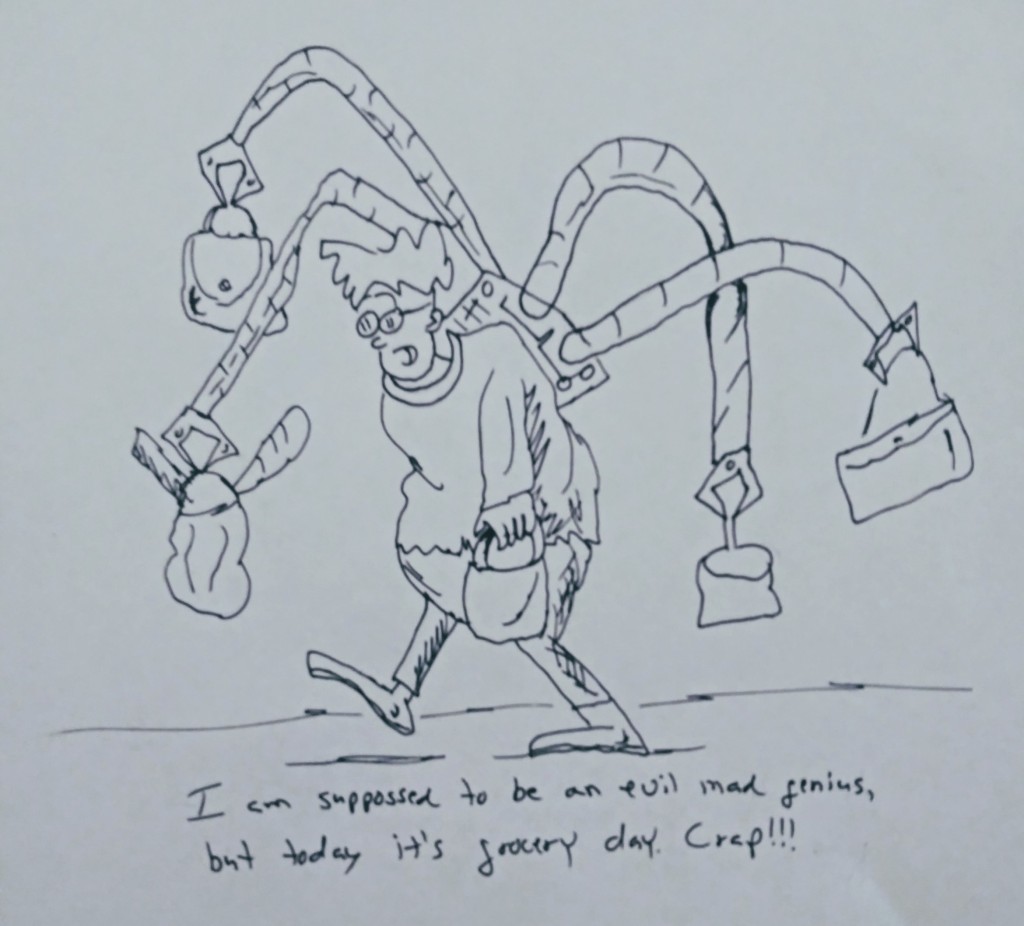 I am suppossed to be an evil mad genius,
but today it's grocery day. Crap!!!